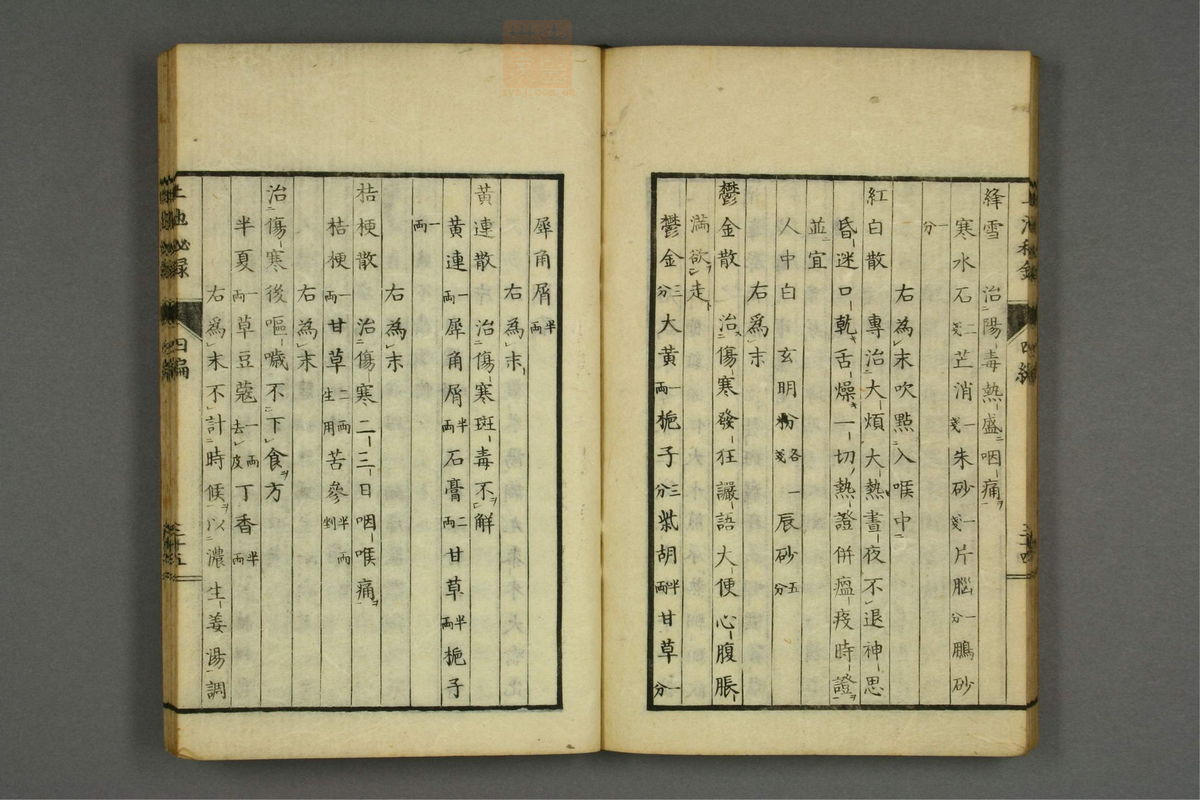 絳雪　治陽毒熱盛咽痛
寒水石二戔芒消一戔朱砂一戔片腦一分鵬砂
一分
右為末吹點入喉中
紅白散　專治大煩大熱晝夜不退神思
昏迷口乾舌燥一切熱證併瘟疫時證
並宜
人中白　玄明粉各一戔　辰砂五分
右為末
鬱金散　治傷寒發狂讝語大便心腹脹
滿欲走
鬱金三分大黃一兩梔子三分柴胡半兩甘草一分
三十四
犀角屑半兩
右為末
黃連散　治傷寒斑毒不解
黃連一兩犀角屑半兩石膏二兩甘草半兩梔子
一兩
右為末
桔梗散　治傷寒二三日咽喉痛
桔梗一兩甘草二兩生用苦參半兩剉
右為末
治傷寒後嘔噦不下食方
半夏一兩草豆蔻一兩去皮丁香半兩
右為末不計時候以濃生姜湯調
上池秘録　四編　三十五